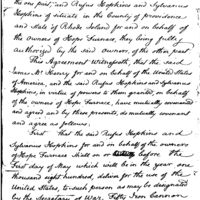 the one part, and Rufus Hopkins and Sylvanus
Hopkins of Scituate in the County of Providence
and State of Rhode Island for and on behalf of
the owners of Hope Furnace, they being fully
authorized by the said owners, of the other part
This Agreement Witnesseth, that the said
James McHenry for and on behalf of the United States
of America, and the said Rufus Hopkins and Sylvanus
Hopkins, in virtue of powers to them granted, on behalf
of the owners of Hope Furnace, have mutually covenanted
and agreed and by these presents, do mutually covenant
and agree as follows.
First that the said Rufus Hopkins and
Sylvanus Hopkins for and on behalf of the owners
of Hope Furnace shall on or before the
First day of May which will be in the year one
thousand eight hundred, deliver for the use of the
United States, to such person as may be designated
by the Secretary of War, Fifty Iron Cannon